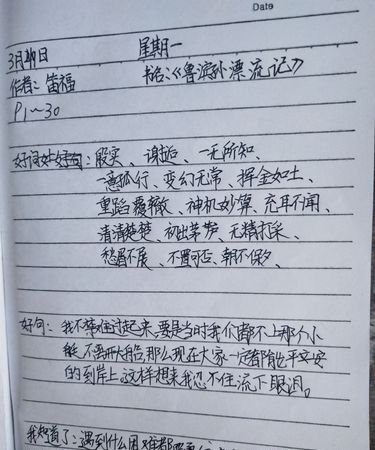 Date
3月29日 星期一
作者：笛福 书名：《鲁滨孙漂流记》
P1～30
好词好句：殷实、谢诟、一无所知、
一意孤行、变幻无常、挥金如土、
重蹈覆辙、神机妙算、充耳不闻、
清清楚楚、初出茅芳、无精打采、
愁眉不展、不置可否、朝不保夕、
好句：我不禁难过起来，要是当时我们都不上那个小
艇，不离开大船，那么现在大家一定都能平平安安
的到岸上，这样想来我忍不住流下眼泪。
我知道了：遇到什么困难都要